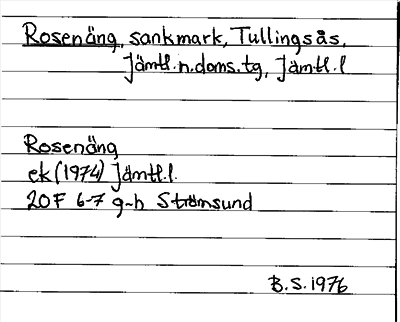 Rosenäng, sankmark, Tullingsås,
Jämtl.n.doms.tg, Jämtl.l
Rosenäng
ek (1974) Jämtl.l.
20F 6-7 g-h Strömsund
B.S. 1976